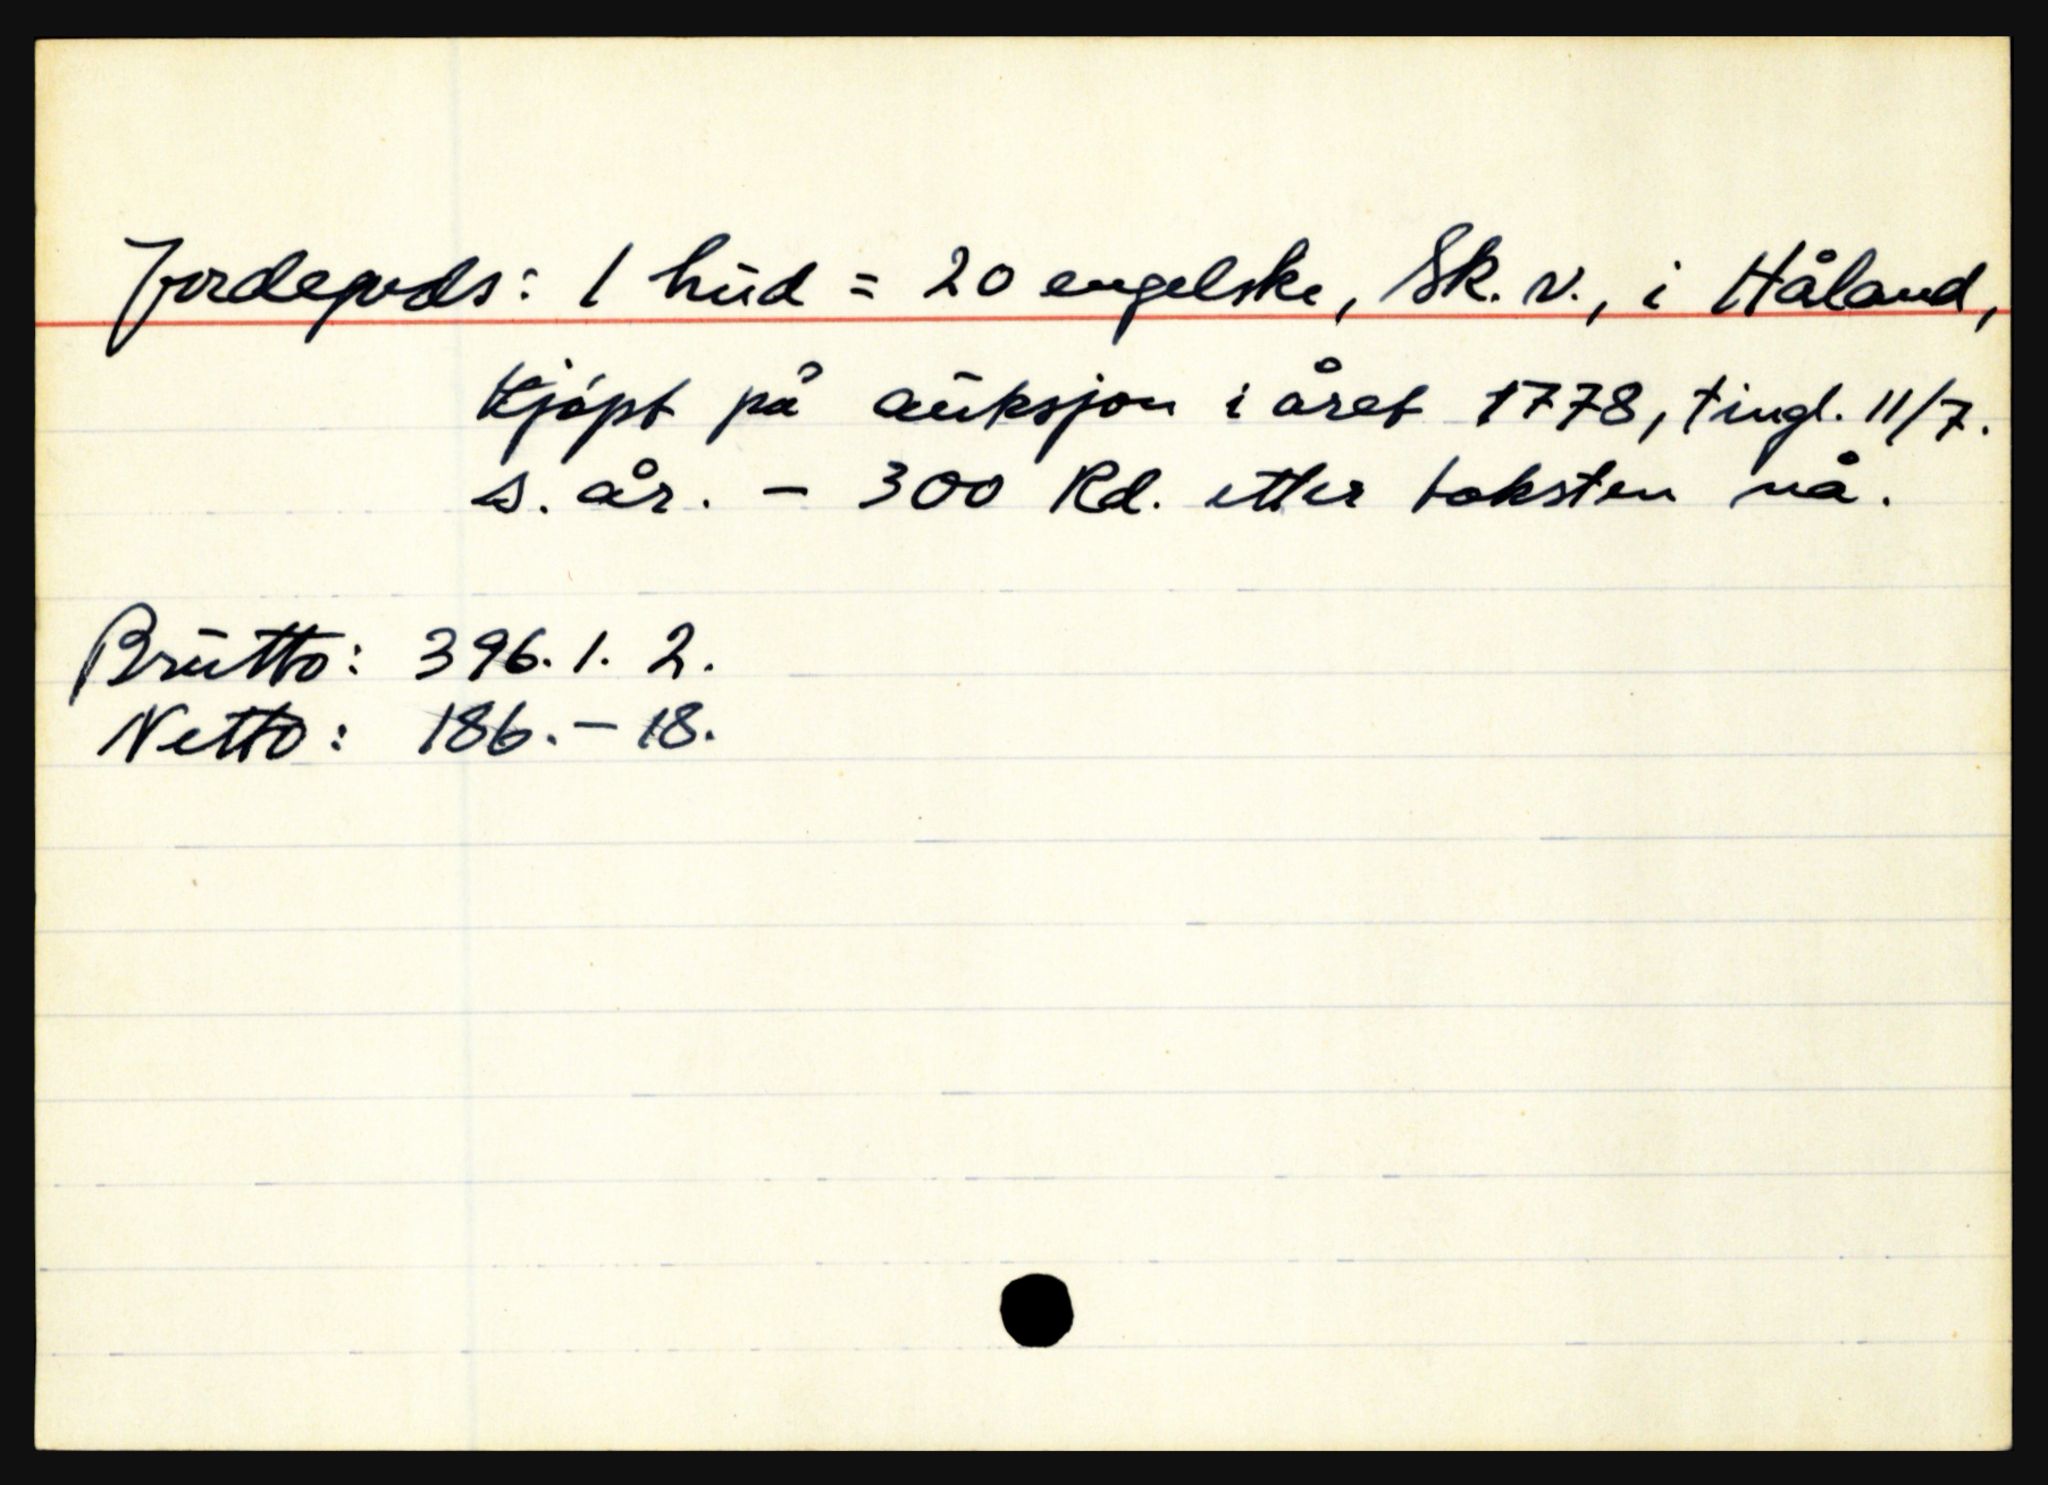 Jordegods: 1 hud = 20 engelske, Sk. v., i Håland,
kjøpt på auksjon i året 1778, tingl. 11/7.
s. år. - 300 Rd. etter taksten nå.
Brutto: 396. 1. 2.
Netto: 186. - 18.